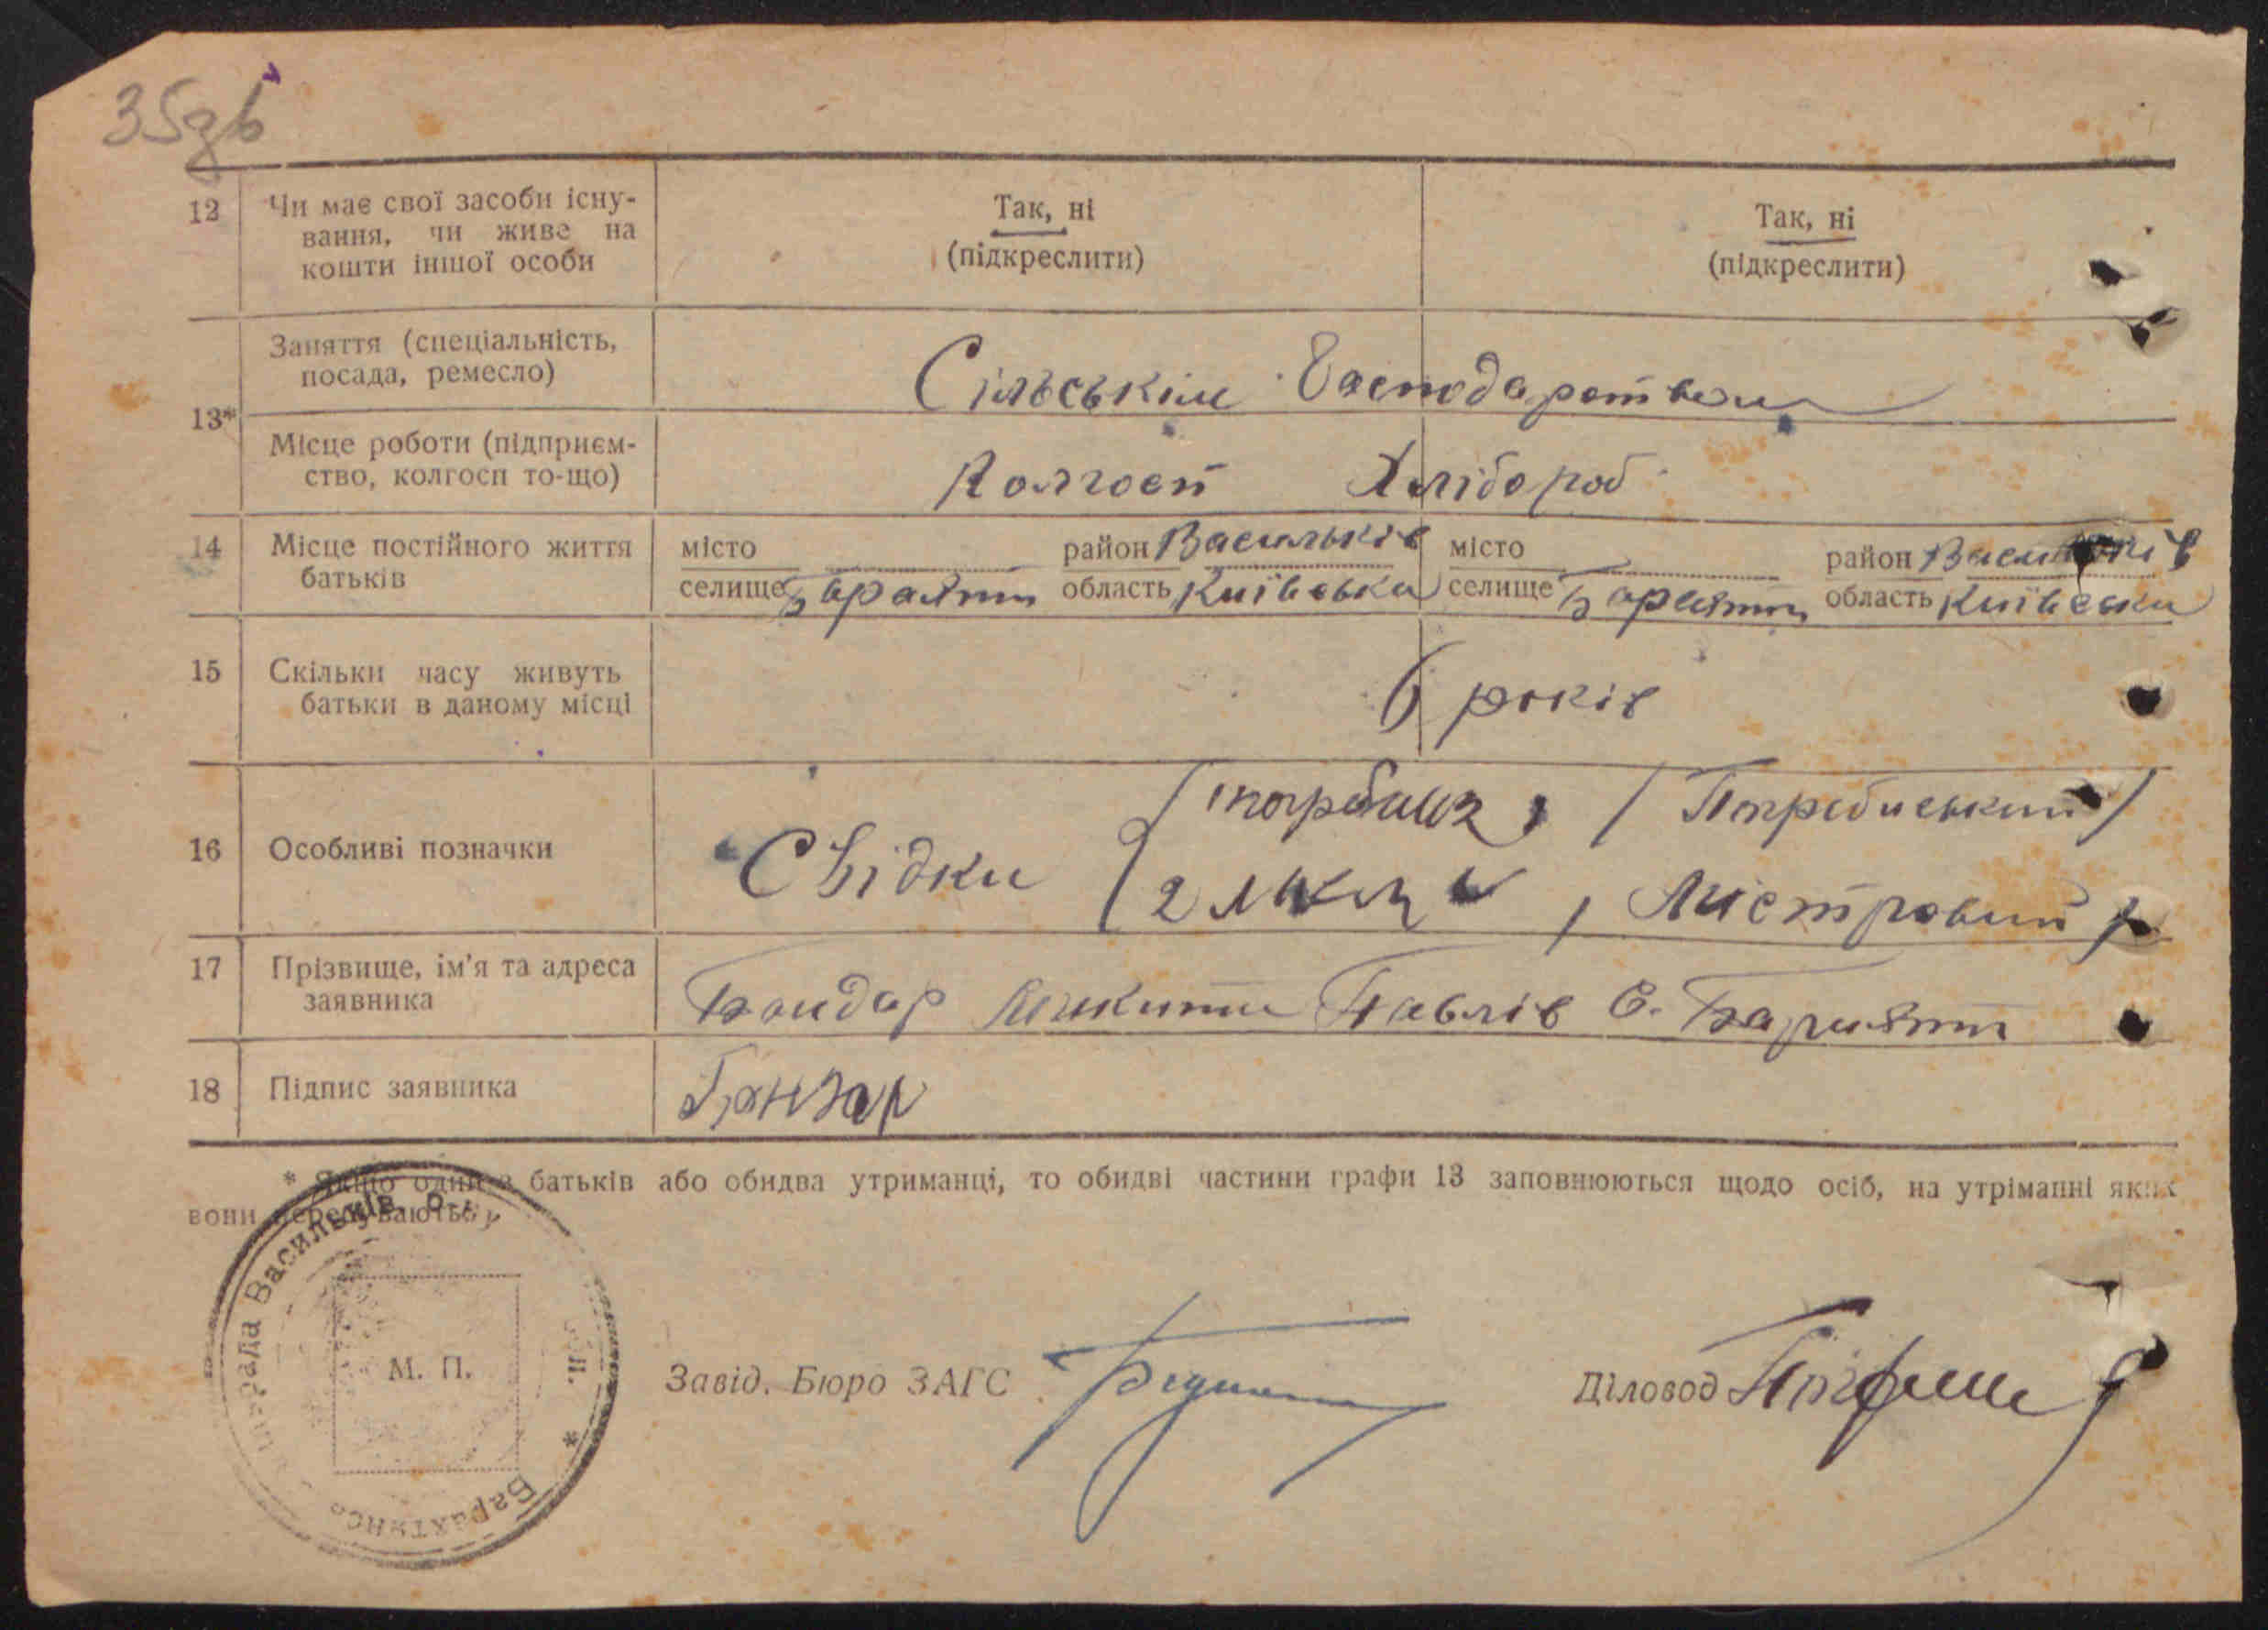 35зв
12 Чи має свої засоби існу-
вання, чи живе на
кошти іншої особи
Так, ні
(підкреслити)
Так, ні
(підкреслити)
13*
Заняття (спеціальність,
посада, ремесло)
Сільськім Господарством
Місце роботи (підприєм-
ство, колгосп то-що)
Колгосп Хлібороб
14 Місце постійного життя
батьків
місто район Васильків місто район Васильків
селище Барахти область Київська селище Барахти область Київська
15 Скільки часу живуть
батьки в даному місці
6 років
16 Особливі позначки
Свідки
/Погребиський/
/Лістровий/
17 Прізвище, ім'я та адреса
заявника
Бондар Микита Павлів С. Барахти
18 Підпис заявника
Бондар
* Якщо один з батьків або обидва утриманці, то обидві частини графи 13 заповнюються щодо осіб, на утріманні яких
вони перебувають.
Васильків. р-ну
Барахтянсь
М. П.
Завід. Бюро ЗАГС
Діловод